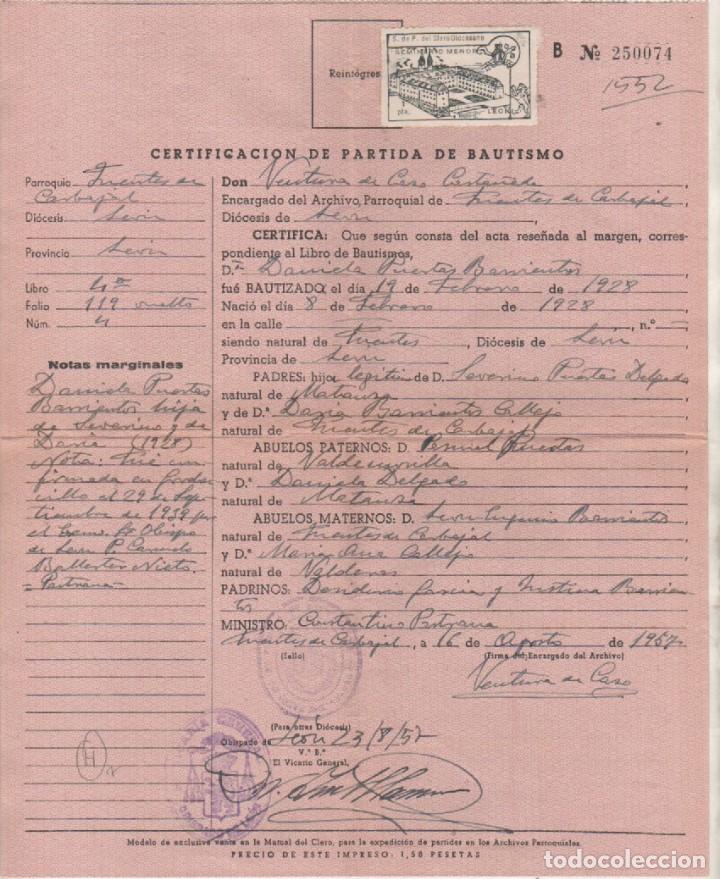 S. de P. del Clero Diocesano
SEMINARIO MENOR
1 pta.
LEON
Reintegres
B Nº 250074
1552
CERTIFICACION DE PARTIDA DE BAUTISMO
Parroquia Fuentes de
Carbajal
Diócesis León
Provincia León
Libro 4º
Folio 119 vuelto
Núm. 4
Notas marginales
Daniela Puertas
Barrientos hija
de Severino y de
Daria (1928)
Nota: Fué con-
firmada en
el 29 de Sep-
tiembre de 1939 por
el Excmo. Sr Obispo
de León P. Carmelo
Ballester Nieto.
Pastrana
Don Ventura de Caso Castañeda,
Encargado del Archivo, Parroquial de Fuentes de Carbajal,
Diócesis de León,
CERTIFICA: Que según consta del acta reseñada al margen, corres-
pondiente al Libro de Bautismos,
D.ª Daniela Puertas Barrientos
fué BAUTIZADO el día 19 de Febrero de 1928
Nació el día 8 de Febrero de 1928
en la calle , n.º
siendo natural de Fuentes, Diócesis de León
Provincia de León
PADRES: hijo legítim de D. Severino Puertas Delgado
natural de Matanza
y de D.ª Daria Barrientos Callejo
natural de Fuentes de Carbajal
ABUELOS PATERNOS: D. Puertas
natural de Valdemorilla
y D.ª Daniela Delgado
natural de Matanza
ABUELOS MATERNOS: D. León Eugenio Barrientos
natural de Fuentes de Carbajal
y D.ª María Ana Callejo
natural de Valderas
PADRINOS: Desiderio García y Justina Barrien-
tos
MINISTRO: Constantino Pastrana
Fuentes de Carbajal, a 16 de Agosto de 1957
(Sello) (Firma del Encargado del Archivo)
Ventura de Caso
(Para otras Diócesis)
Obispado de León 23/8/57
V.º B.º
El Vicario General,
Modelo de exclusiva venta en la Mutual del Clero, para la expedición de partidas en los Archivos Parroquiales.
PRECIO DE ESTE IMPRESO: 1,50 PESETAS
todocoleccion